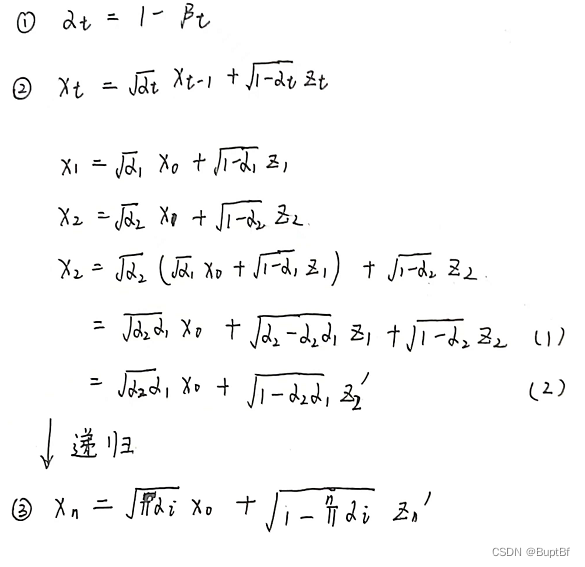 ① α_t = 1 - β_t
② x_t = √α_t x_{t-1} + √(1-α_t) z_t
x_1 = √α_1 x_0 + √(1-α_1) z_1
x_2 = √α_2 x_1 + √(1-α_2) z_2.
x_2 = √α_2 (√α_1 x_0 + √(1-α_1) z_1) + √(1-α_2) z_2.
= √(α_2α_1) x_0 + √(α_2-α_2α_1) z_1 + √(1-α_2) z_2 (1)
= √(α_2α_1) x_0 + √(1-α_2α_1) z_2' (2)
↓ 递归
③ x_n = √(∏^n α_i) x_0 + √(1-∏^n α_i) z_n'
CSDN @BuptBf